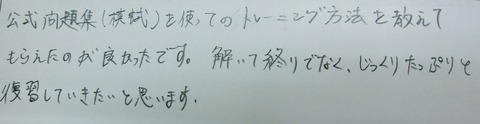 公式問題集(模試)を使ってのトレーニング方法を教えて
もらえたのが良かったです。解いて終りでなく、じっくりたっぷりと
復習していきたいと思います.